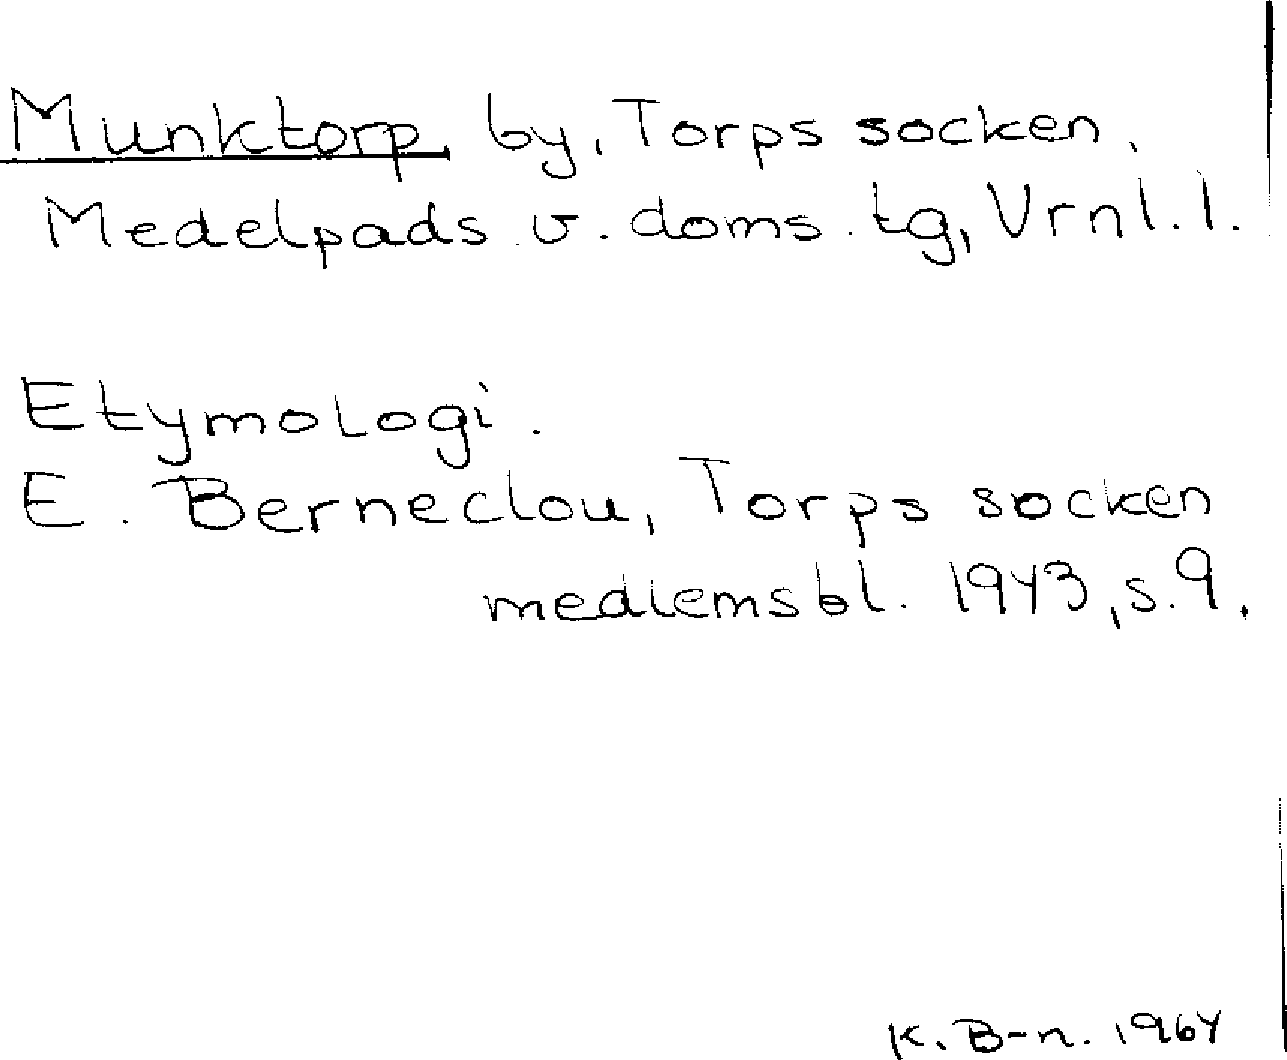 Munktorp by, Torps socken,
Medelpads v. doms. tg, Vrnl. l.
Etymologi.
E. Berneclou, Torps socken
medlemsbl. 1943, s. 9.
K. B-n. 1964